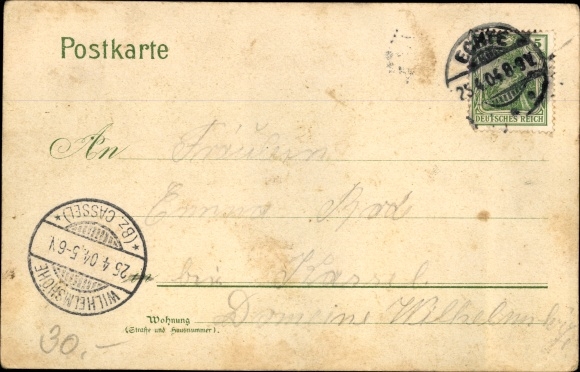 Postkarte
ECHTE
25.4.04.8-9V.
5
DEUTSCHES REICH
An Fräulein
Emma
bei Kassel
Domeine Wilhelmshöhe
Wohnung
(Straße und Hausnummer).
WILHELMSHÖHE
25.4.04.5-6V.
*(BZ. CASSEL)*
30.-